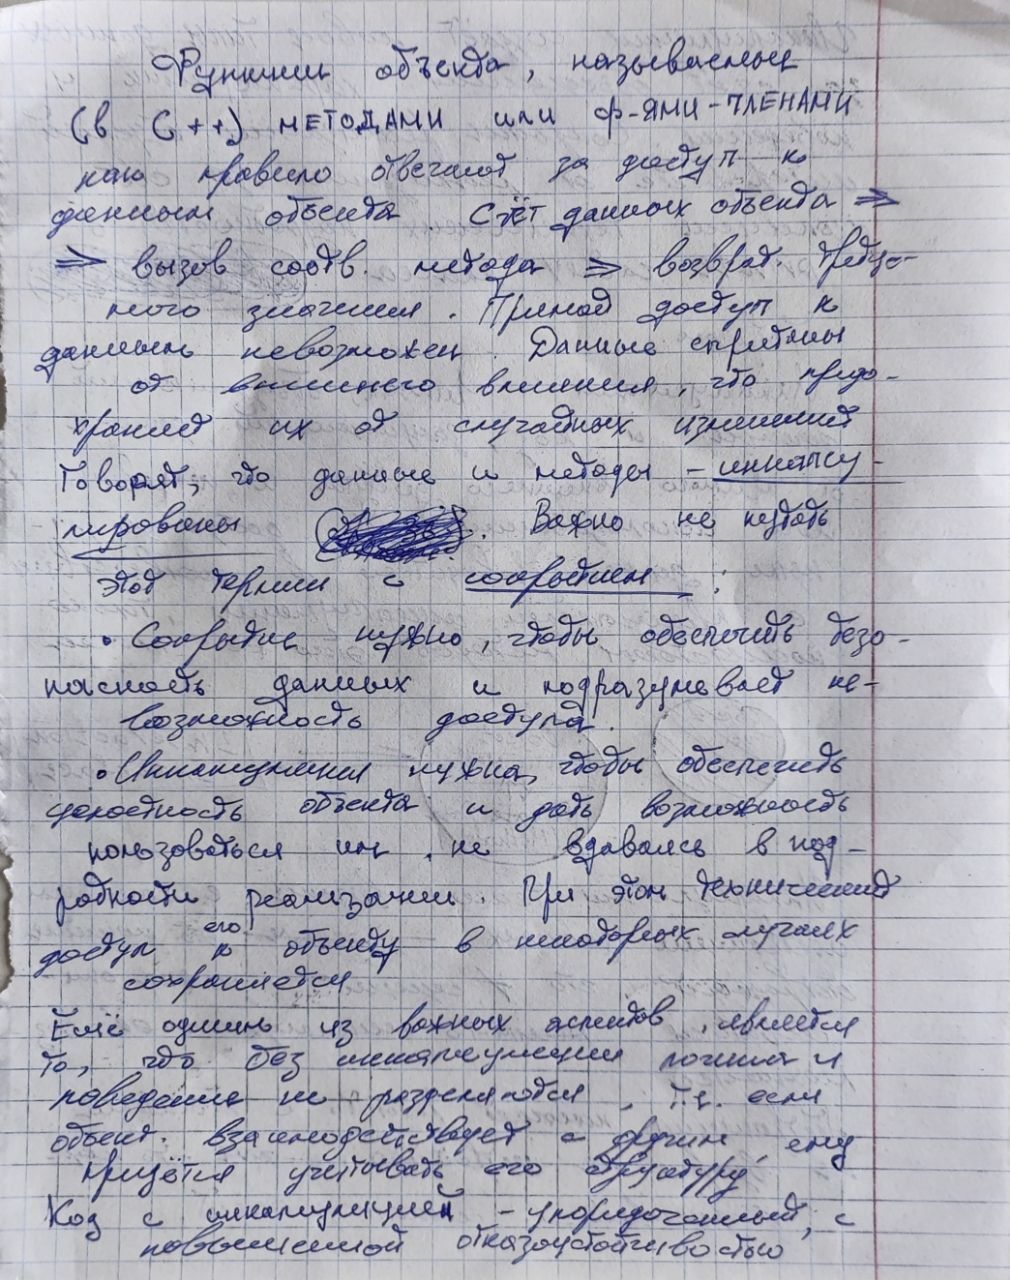 Функции объекта, называемые
(в C++) МЕТОДАМИ или Ф-ЯМИ-ЧЛЕНАМИ
как правило отвечают за доступ к
данным объекта Счёт данных объекта ⇒
⇒ вызов соотв. метода ⇒ возврат. требуе-
мого значения. Прямой доступ к
данным невозможен. Данные спрятаны
от внешнего влияния, что предо-
храняет их от случайных изменений
Говорят, что данные и методы - инкапсу-
лированы . Важно не путать
этот термин с сокрытием :
• Сокрытие нужно, чтобы обеспечить безо-
пасность данных и подразумевает не-
возможность доступа.
• Инкапсуляция нужна, чтобы обеспечить
целостность объекта и дать возможность
пользоваться им, не вдаваясь в под-
робности его реализации. При этом технический
доступ к объекту в некоторых случаях
сохраняется
Ещё одним из важных аспектов, является
то, что без инкапсуляции логика и
поведение не разделяются, т.е. если
объект. взаимодействует с другим, ему
придётся учитывать его структуру
Код с инкапсуляцией - упорядоченный, с
повышенной отказоустойчивостью